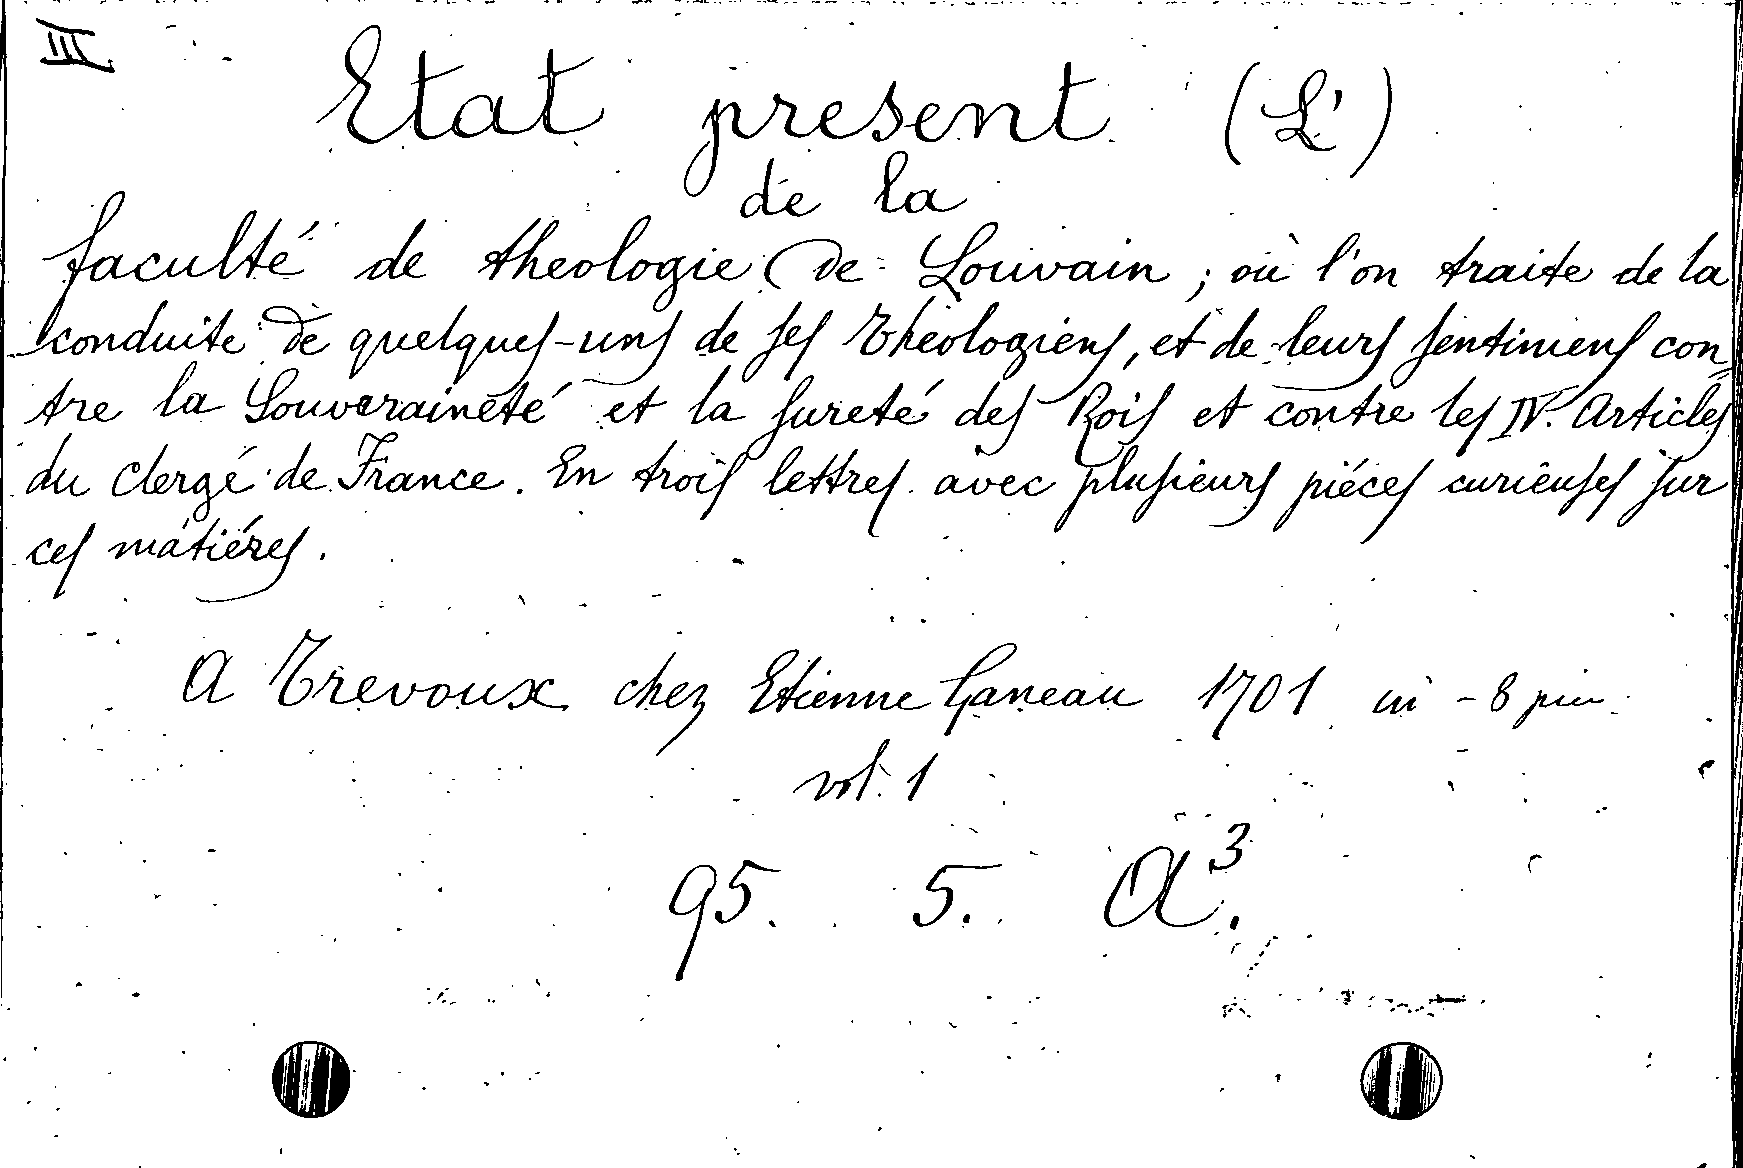 III
Etat present (L')
de la
faculté de theologie de Louvain ; où l'on traite de la
conduite de quelques-uns de ses theologiens, et de leurs sentimens con=
tre la Souveraineté et la sureté des Rois et contre les IV. Articles
du Clergé de France. En trois lettres avec plusieurs piéces curieuses sur
ces matiéres.
A Trevoux chez Etienne Ganeau 1701 in - 8 pim
vol. 1
95. 5. A³.